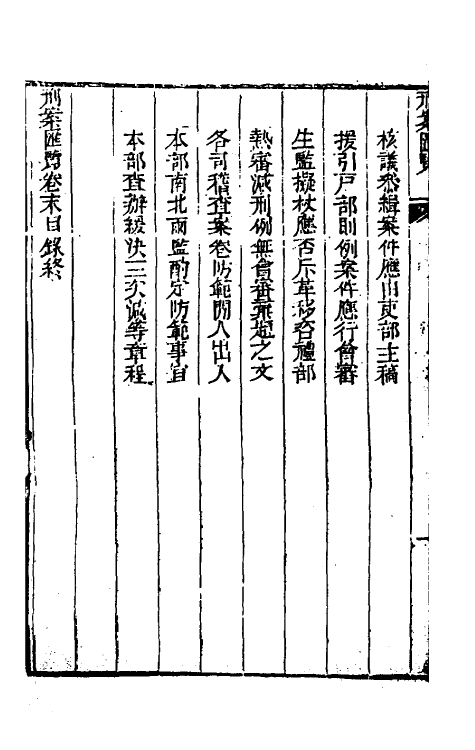 刑案匯覽
核議承緝案件應由吏部主稿
援引戶部則例案件應行會審
生監擬杖應否斥革移咨禮部
熱審減刑例無會審虛之文
各司稽查案卷防範閒人出入
本部南北兩監酌定防範事宜
本部查辦緩決三次減等章程
刑案匯覽卷末目錄終